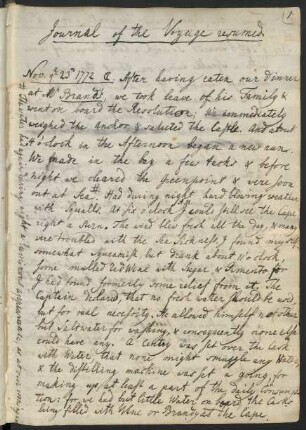 1
Journal of the Voyage resumed.
Nov. ye 23d 1772 ☾. After having eaten our Dinner
at Mr Brand's we took leave of his Family &
went on board the Resolution; we immediately
weighed the anchor & saluted the Castle. And about
4 o'clock in the Afternoon began a new run.
We made in the bay a few tacks & before
night we cleared the greenpoint & were soon
out at Sea. Had during night hard blowing weather
with Squalls. At six o'clock I could still see the Cape
right a stern. The wind blew fresh all the day, & many
were troubled with the Sea Sickness, I found myself
somewhat squeamish but drank about 11 o'clock,
some mulled red Wine with Sugar & Pimento for
I had found formerly some relief from it. The
Captain declared, that no fresh water should be used
but for real necessity. He allowed himself no other
but Saltwater for washing, & consequently none else
could have any. A Centry was set over the Cask
with Water that none might smuggle any Water
& the distilling machine was set a going, for
making up at least a part of the daily consump-
tion: for we had but little Water on board the Casks
being filled with Wine or Brandy at the Cape.